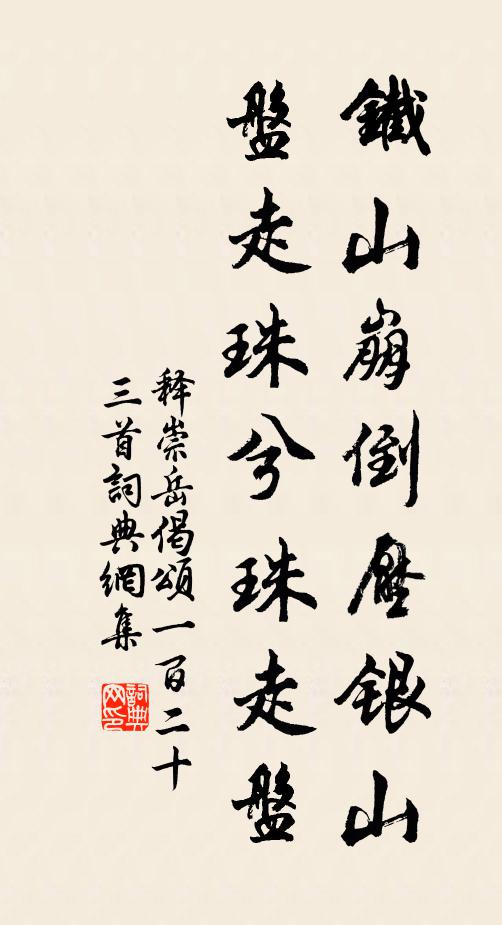 鐵山崩倒壓銀山
盤走珠兮珠走盤
釋崇岳偈頌一百二十
三首詞典網集
詞典网印